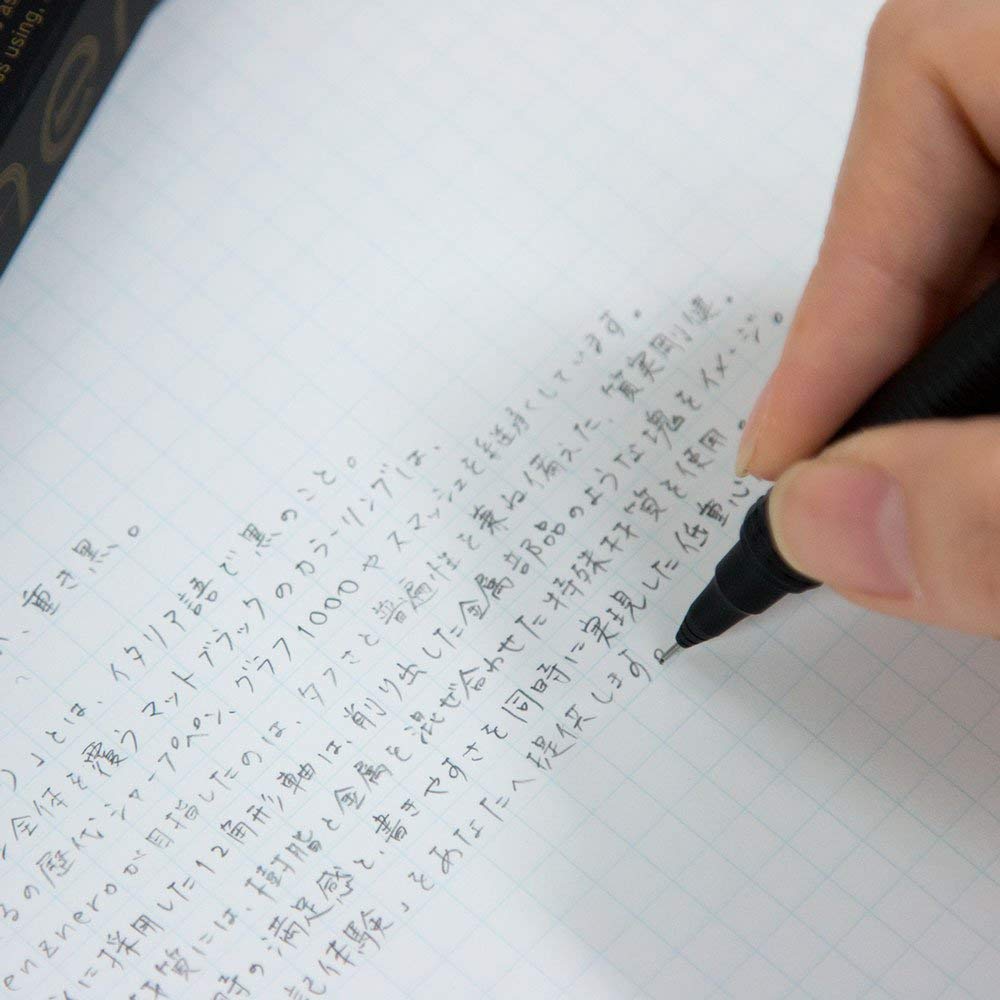 s as
ss using,
ne
、重き黒。
)」とは、イタリア語で黒のこと。
全体を覆うマットブラックのカラーリングは、
るの歴代シャープペン、グラフ1000やスマッシュを継承しています。
enzneroが目指したのは、タフさと普遍性を兼ね備えた、質実剛健。
に採用した12角形軸は、削り出した金属部品のような塊をイメージ。
材質には、樹脂と金属を混ぜ合わせた特殊材質を使用。
時の満足感と、書きやすさを同時に実現した低重心
記体験」をあなたへ提供します。